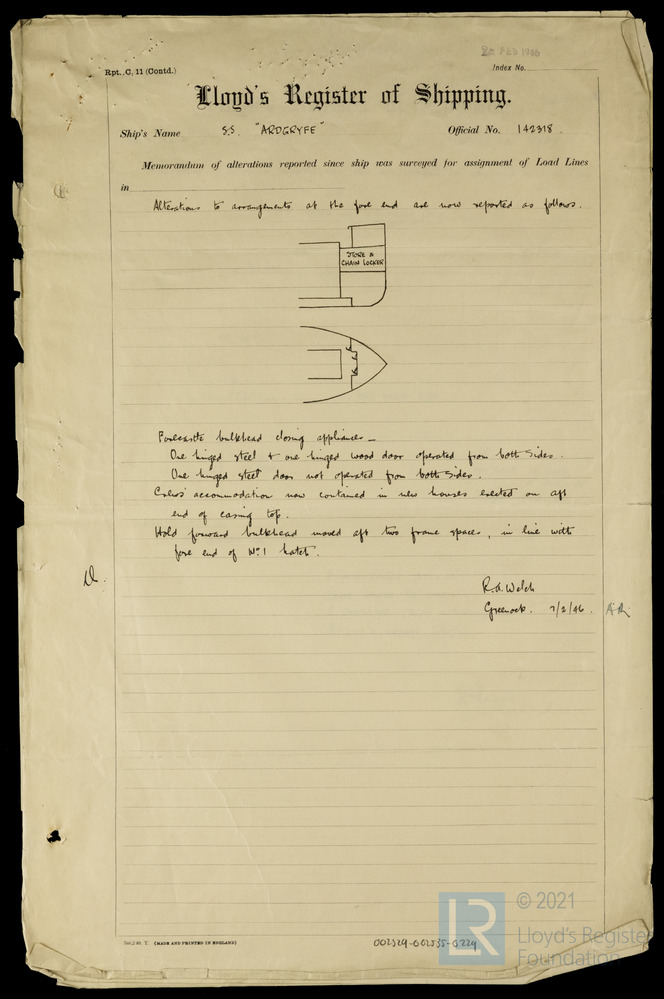 22 FEB 1946
Rpt. C. 11 (Contd.)
Index No.
Lloyd's Register of Shipping.
Ship's Name S.S. "ARDGRYFE" Official No. 142318.
Memorandum of alterations reported since ship was surveyed for assignment of Load Lines
in
Alterations to arrangements at the fore end are now reported as follows.
STORE &
CHAIN LOCKER
Forecastle bulkhead closing appliances—
One hinged steel & one hinged wood door operated from both sides.
One hinged steel door not operated from both sides.
Crews' accommodation now contained in new houses erected on aft
end of casing top.
Hold forward bulkhead moved aft two frame spaces, in line with
fore end of No. 1 hatch.
R.A. Welch
Greenock. 7/2/46.
(MADE AND PRINTED IN ENGLAND)
002529-002535-0224
LR
© 2021
Lloyd's Register
Foundation